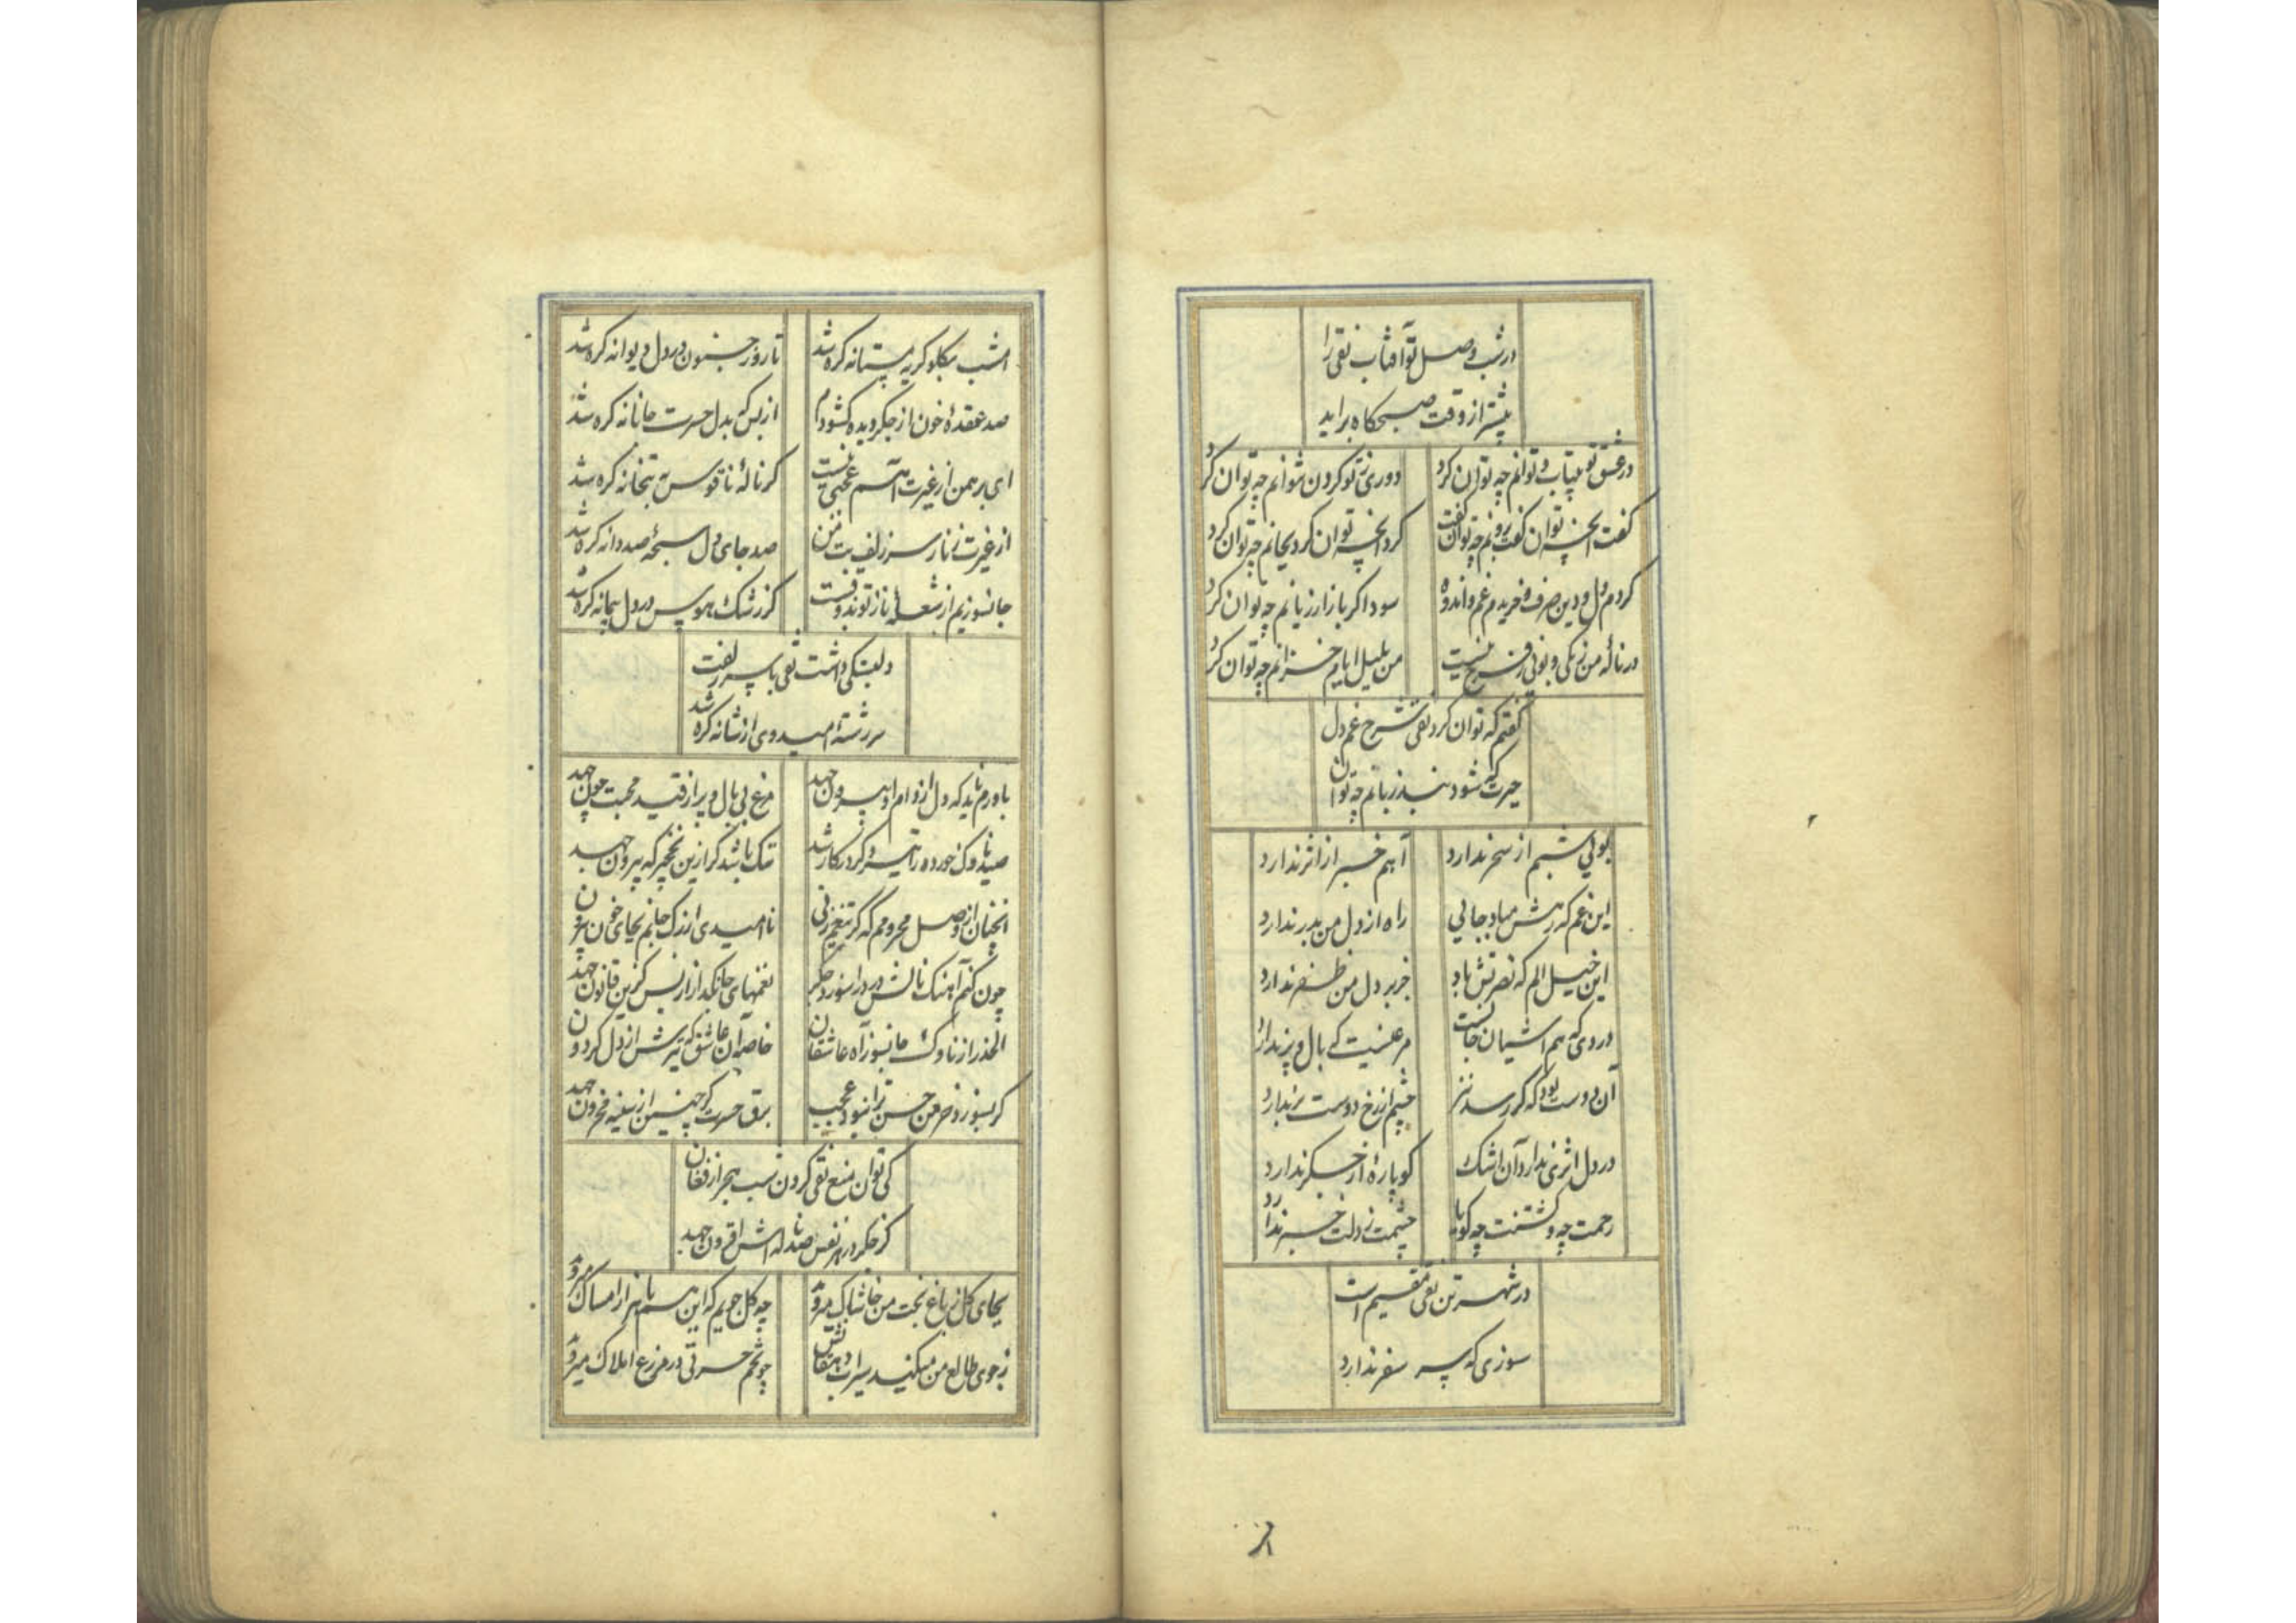 در شب وصل تو آفتاب نقی را
پیشتر از وقت صبحگاه براید
در عشق تو بیتاب و توانم چه توان کرد
دوری ز تو کردن نتوانم چه توان کرد
گفت آنچه توان گفت برویم چه توان گفت
کرد آنچه توان کرد بجانم چه توان کرد
کردم دل و دین صرف و خریدم غم و اندوه
سوداگر بازار زیانم چه توان کرد
در نالهٔ من رنگی و بوئی ز فرح نیست
من بلبل ایام خزانم چه توان کرد
گفتم که توان کرد نقی شرح غم دل
حیرت که شود بند زبانم چه توان
بوئی شبم از سحر ندارد
آهم خبر از اثر ندارد
این غم که رهش مباد جائی
راه از دل من بدر ندارد
این خیل الم که نصرتش باد
جز بر دل من ظفر ندارد
دردی که هم آشیان جانست
مرغیست که بال و پر ندارد
آن دوست بود که گر رسد تیر
چشم از رخ دوست بر ندارد
در دل اثری ندارد آن اشک
کو پارهٔ از جگر ندارد
رحمت چه و کشتنت چه گویا
چشمت ز دلت خبر ندارد
در شهر تن نقی مقیم است
سوزی که سر سفر ندارد
امشب بگلو گریه مستانه گره شد
تا روز جنون در دل دیوانه گره شد
صد عقدهٔ خون از جگر و دیده گشودم
از بس که بدل حسرت جانانه گره شد
ای برهمن از غیرت آهم عجبی نیست
گر نالهٔ ناقوس به بتخانه گره شد
از غیرت زنار سر زلف بت من
صد جای دل سبحهٔ صد دانه گره شد
جانسوزیم از شعلهٔ ناز تو نه دوست
کز رشک هوس در دل پیمانه گره شد
دلبستگی داشت نقی با سر زلفت
سر رشته امید وی از شانه گره شد
باورم ناید که دل از دام او بیرون جهد
مرغ بی بال و پر از قید محبت چون جهد
صید ناوک خورده را تیر و کرد کار شد
تنگ باشد گر ازین نخجیر گه بیرون جهد
آنچنان از وصل محرومم که گر تیغم زنی
ناامیدی از رگ جانم بجای خون
چون کنم آهنک نالش در درا سوزد جگر
نغمهای جانگداز از بس کزین قانون جهد
الحذر از ناوک جانسوز آه عاشقان
خاصه آن عاشق که تیرش از دل گردون
گر بسوزد خرمن حسن ترا نبود عجب
برق حسرت کو چنین از سینه محزون جهد
کی توان منع نقی کردن شب هجر از فغان
کز جگر در هر نفس صد ناله اش افزون جهد
بجای گل ز باغ بخت من خاشاک میروید
چه گل جویم که این هم با هزار امساک میروید
ز جوی طالع من میکند سیراب دهقانش
چو تخم حسرتی در مزرع املاک میروید